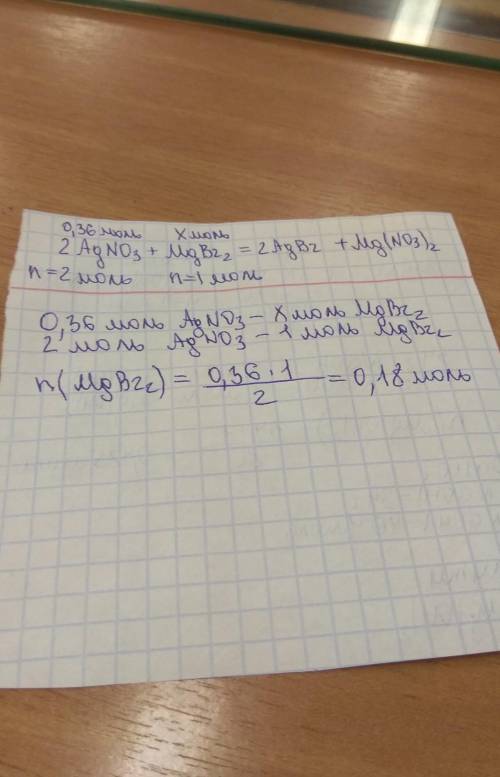 0,36 моль х моль
2 AgNO3 + MgBr2 = 2AgBr + Mg(NO3)2
n=2 моль n=1 моль
0,36 моль AgNO3 – х моль MgBr2
2 моль AgNO3 – 1 моль MgBr2
n(MgBr2) = 0,36·1 / 2 = 0,18 моль